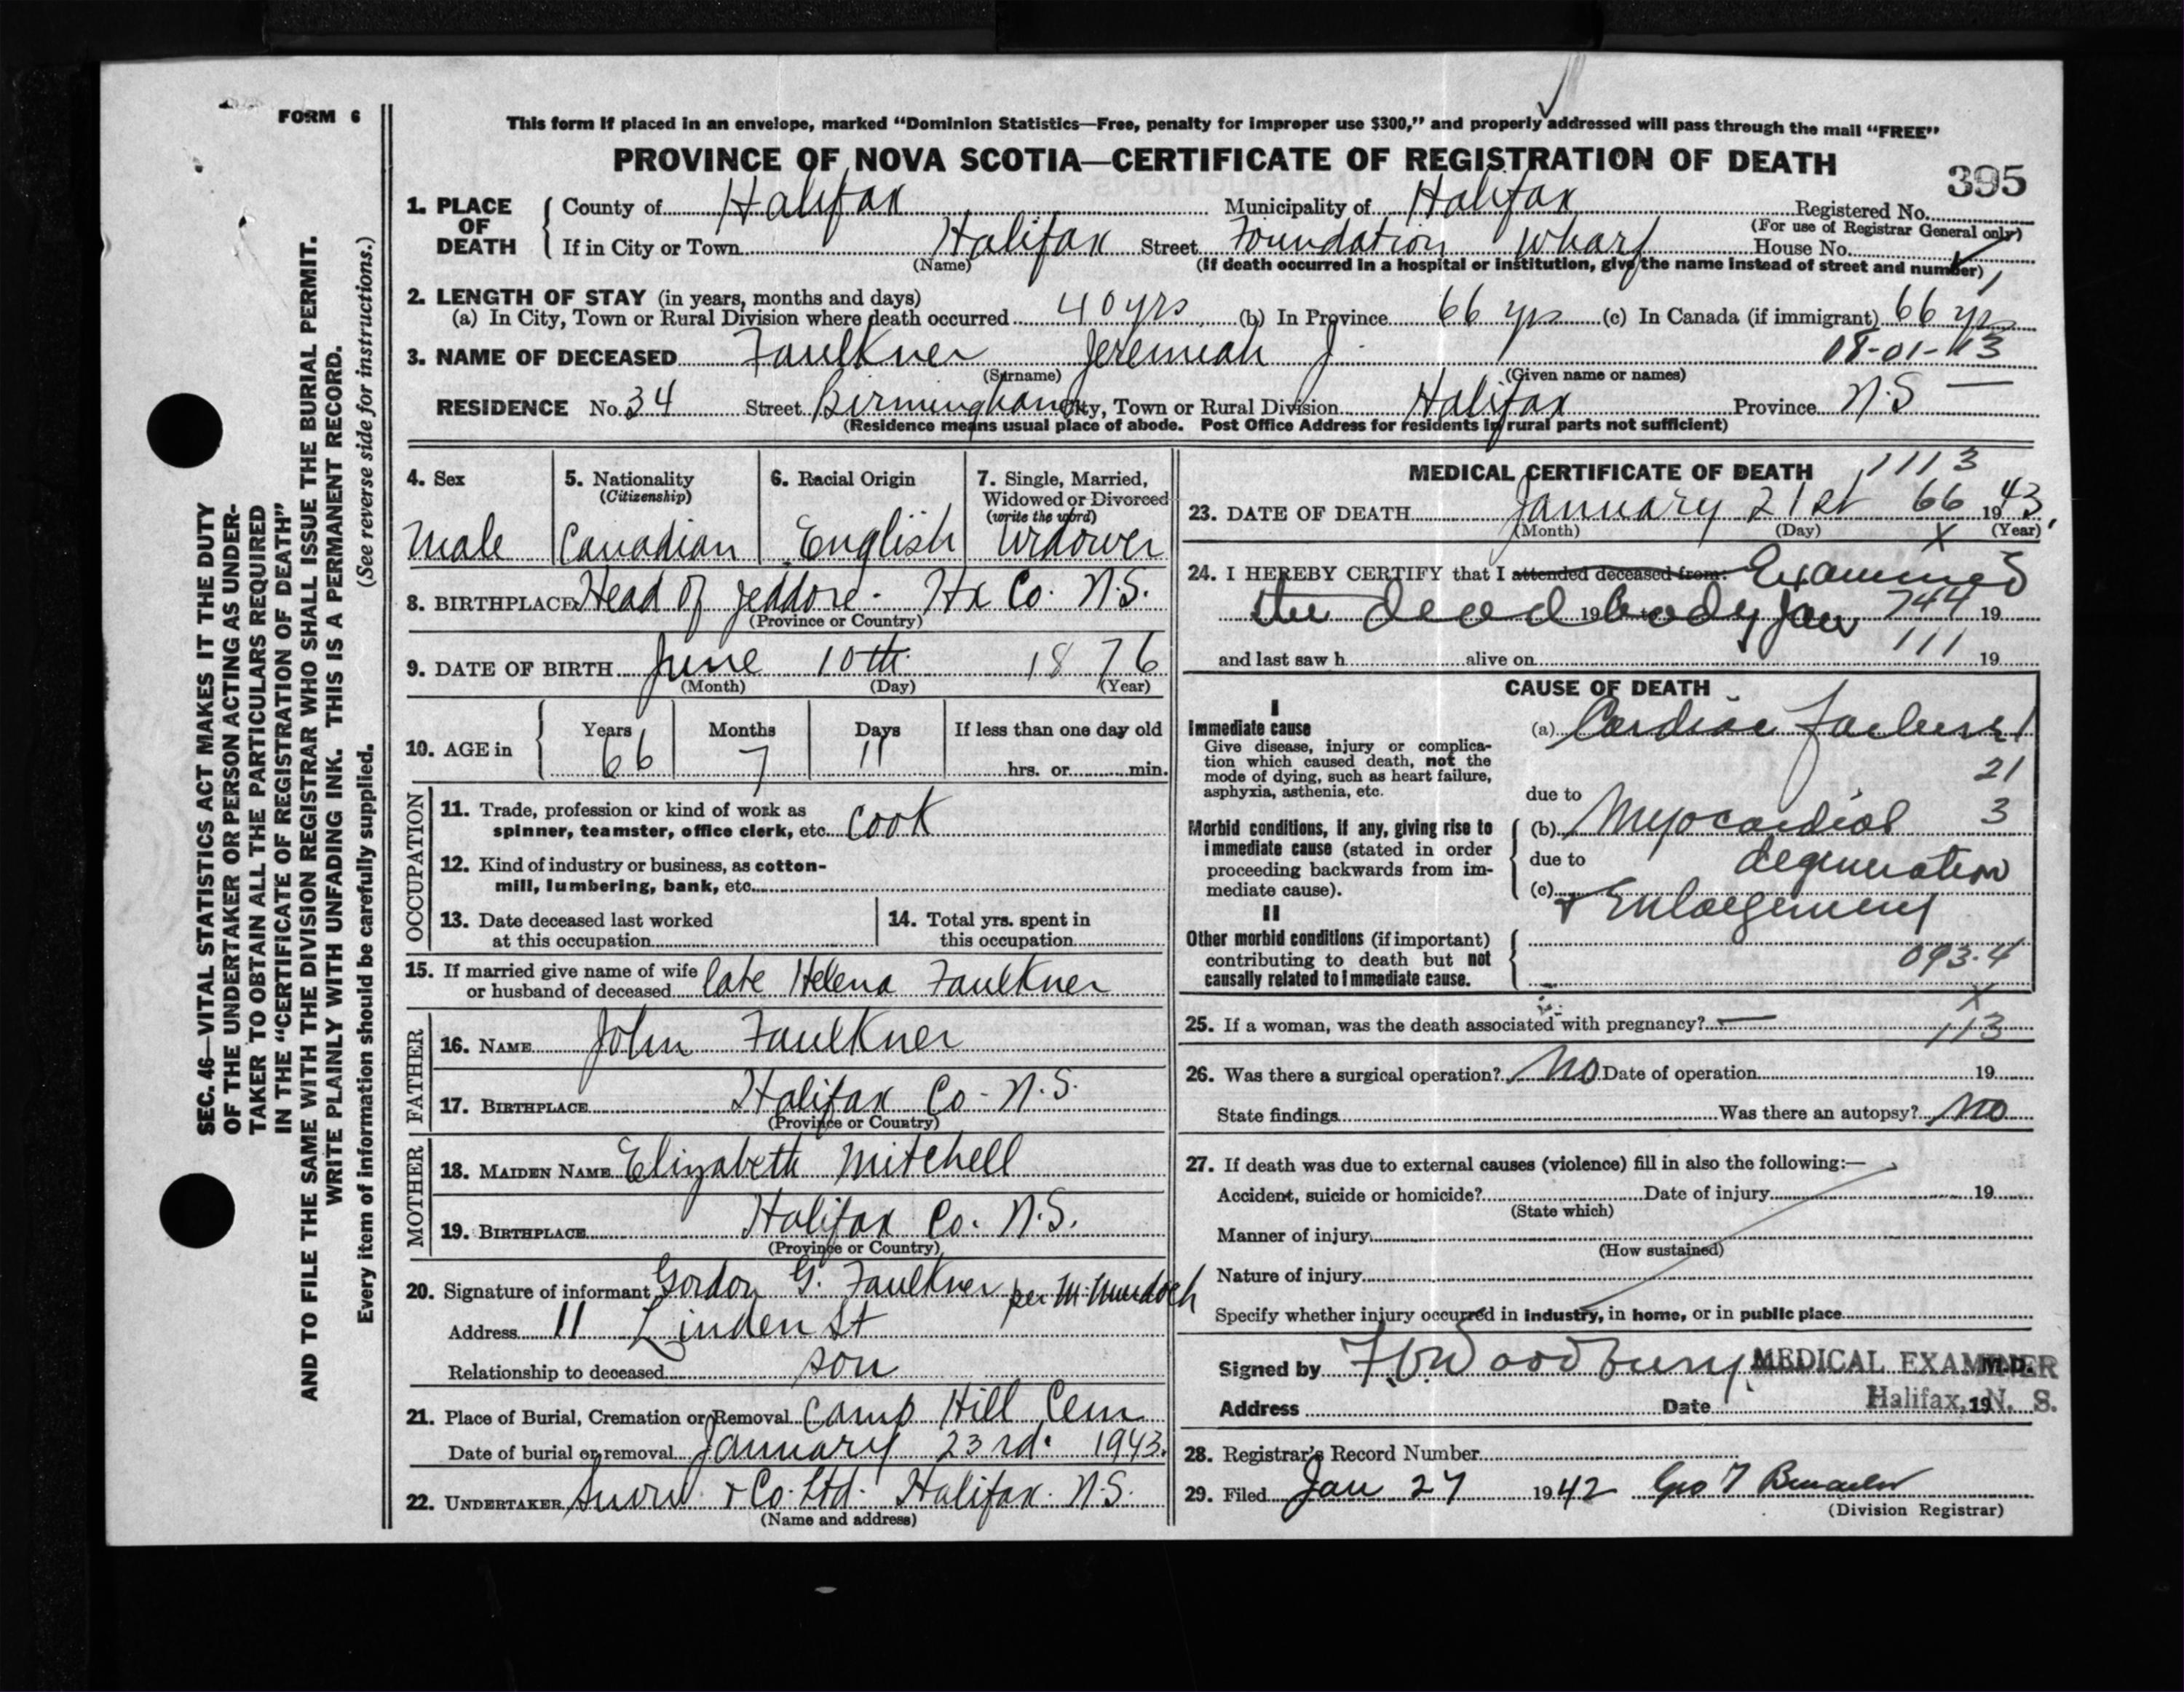 FORM 6
This form if placed in an envelope, marked "Dominion Statistics—Free, penalty for improper use $300," and properly addressed will pass through the mail "FREE"
PROVINCE OF NOVA SCOTIA—CERTIFICATE OF REGISTRATION OF DEATH
395
1. PLACE OF DEATH
County of Halifax Municipality of Halifax Registered No.
(For use of Registrar General only)
If in City or Town Halifax Street Foundation Wharf House No.
(Name) (If death occurred in a hospital or institution, give the name instead of street and number)
2. LENGTH OF STAY (in years, months and days)
(a) In City, Town or Rural Division where death occurred 40 yrs (b) In Province 66 yrs (c) In Canada (if immigrant) 66 yrs
3. NAME OF DECEASED Faulkner Jeremiah J. 08-01-13
(Surname) (Given name or names)
RESIDENCE No. 34 Street Birmingham City, Town or Rural Division Halifax Province N.S —
(Residence means usual place of abode. Post Office Address for residents in rural parts not sufficient)
4. Sex
Male
5. Nationality
(Citizenship)
Canadian
6. Racial Origin
English
7. Single, Married,
Widowed or Divorced
(write the word)
Widower
8. BIRTHPLACE Head of Jeddore - Hx Co. N.S.
(Province or Country)
9. DATE OF BIRTH June 10th 1876
(Month) (Day) (Year)
10. AGE in
Years Months Days If less than one day old
66 7 11 hrs. or min.
OCCUPATION
11. Trade, profession or kind of work as
spinner, teamster, office clerk, etc. Cook
12. Kind of industry or business, as cotton-
mill, lumbering, bank, etc.
13. Date deceased last worked
at this occupation
14. Total yrs. spent in
this occupation
15. If married give name of wife
or husband of deceased late Helena Faulkner
FATHER
16. NAME John Faulkner
17. BIRTHPLACE Halifax Co - N.S.
(Province or Country)
MOTHER
18. MAIDEN NAME Elizabeth Mitchell
19. BIRTHPLACE Halifax Co. N.S.
(Province or Country)
20. Signature of informant Gordon G. Faulkner per M. Murdoch
Address 11 Linden St
Relationship to deceased son
21. Place of Burial, Cremation or Removal Camp Hill Cem
Date of burial or removal January 23rd. 1943.
22. UNDERTAKER Snow & Co. Ltd. Halifax. N.S.
(Name and address)
MEDICAL CERTIFICATE OF DEATH 1113
23. DATE OF DEATH January 21st 66 1943,
(Month) (Day) X (Year)
24. I HEREBY CERTIFY that I attended deceased from: Examined
the dead 19 body Jan 744 19
and last saw h alive on 111 19
CAUSE OF DEATH
I
Immediate cause
Give disease, injury or complica-
tion which caused death, not the
mode of dying, such as heart failure,
asphyxia, asthenia, etc.
(a) Cardiac failure 1
21
due to
Morbid conditions, if any, giving rise to
immediate cause (stated in order
proceeding backwards from im-
mediate cause).
(b) Myocardial 3
due to degeneration
(c) & Enlargement
II
Other morbid conditions (if important)
contributing to death but not
causally related to immediate cause.
093.4
X
25. If a woman, was the death associated with pregnancy? — 113
26. Was there a surgical operation? No Date of operation 19
State findings Was there an autopsy? No
27. If death was due to external causes (violence) fill in also the following:—
Accident, suicide or homicide? Date of injury 19
(State which)
Manner of injury
(How sustained)
Nature of injury
Specify whether injury occurred in industry, in home, or in public place
Signed by F.V. Woodbury MEDICAL EXAMINER M.D.
Address Date Halifax, N. S. 19
28. Registrar's Record Number
29. Filed Jan 27 1942 Geo T
(Division Registrar)
SEC. 46—VITAL STATISTICS ACT MAKES IT THE DUTY
OF THE UNDERTAKER OR PERSON ACTING AS UNDER-
TAKER TO OBTAIN ALL THE PARTICULARS REQUIRED
IN THE "CERTIFICATE OF REGISTRATION OF DEATH"
AND TO FILE THE SAME WITH THE DIVISION REGISTRAR WHO SHALL ISSUE THE BURIAL PERMIT.
WRITE PLAINLY WITH UNFADING INK. THIS IS A PERMANENT RECORD.
Every item of information should be carefully supplied. (See reverse side for instructions.)